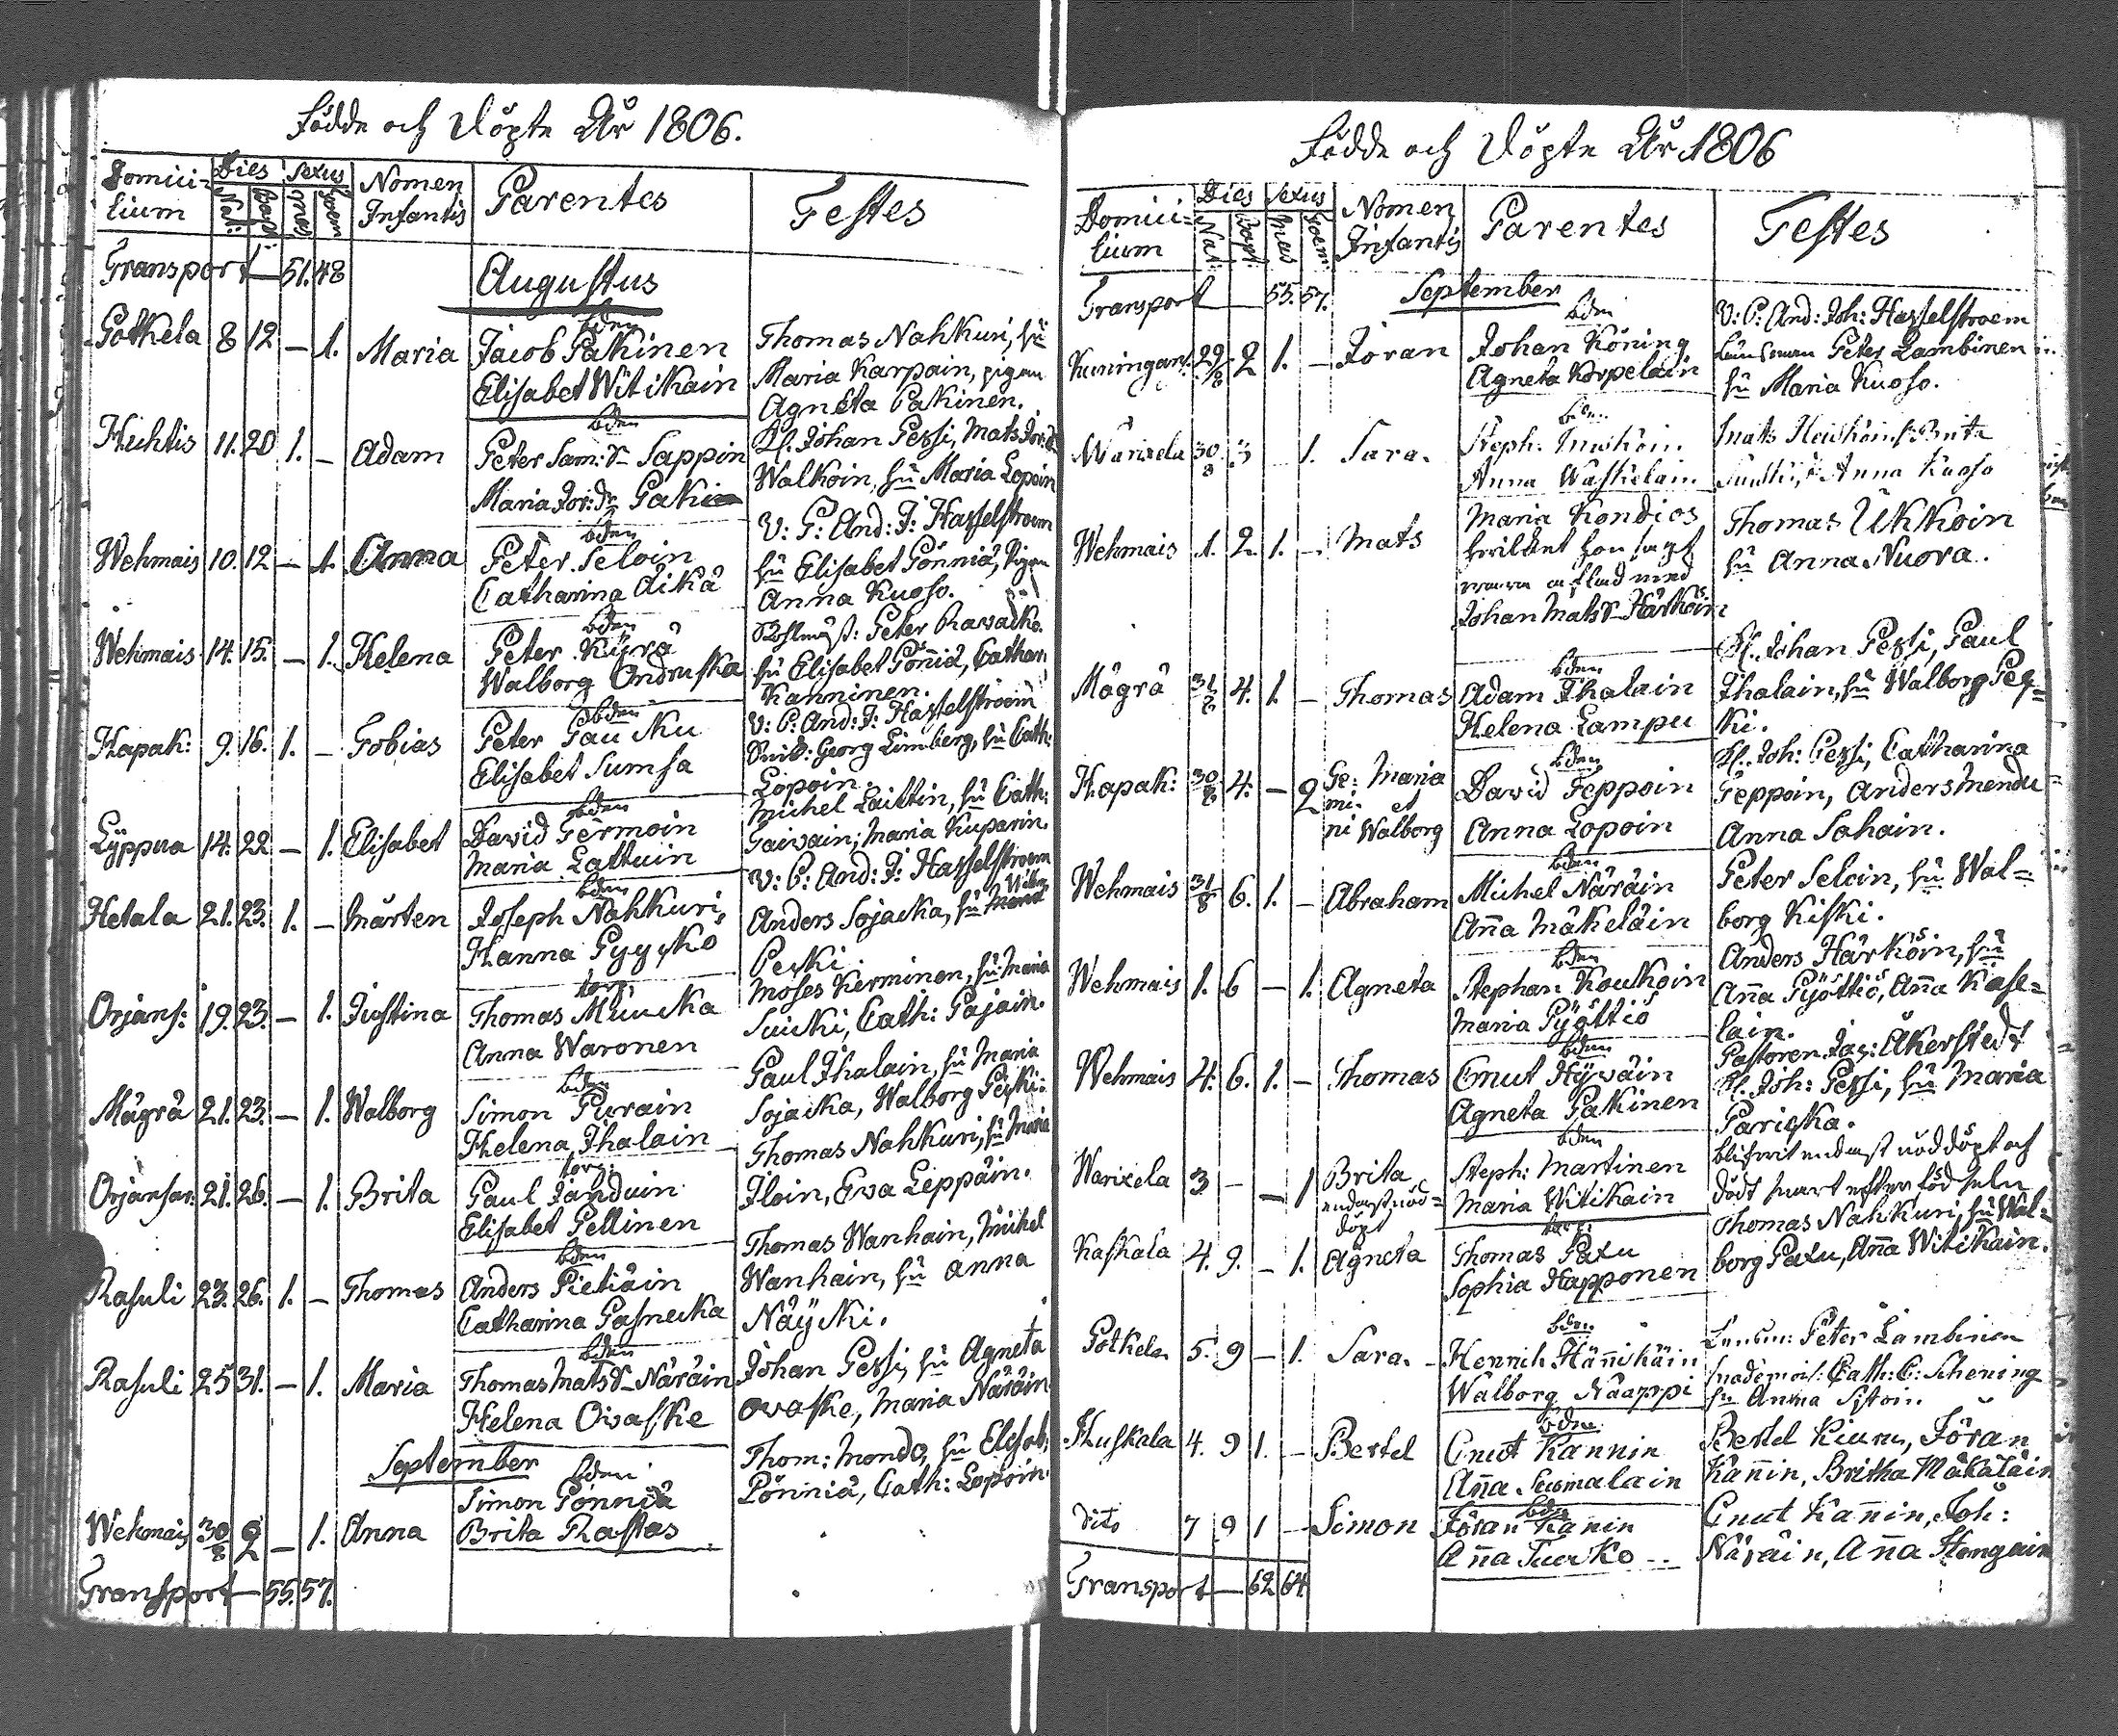 Födde och Döpte År 1806.
Domici-
lium
Dies
Nat:
Bapt:
Sexus
Mas
Foem
Nomen
Infantis
Parentes
Testes
Transport — 51. 48
Augustus
Pothela 8 12 — 1. Maria
bden
Jacob Pakinen
Elisabet Witikain
Thomas Nahkuri, hu
Maria Karpain, pigan
Agneta Pakinen.
Huhtis 11. 20 1. — Adam
bden
Peter Sam: S- Sappin
Maria Jor: Dr
Kl. Johan Pessi, Mats
Walkoin, hu Maria Lopoin
Wehmais 10. 12 — 1. Anna
bden
Peter Seloin
Catharina Äikä
V: P: And: J: Hasselstroem
hu Elisabet Pönniä, Pigan
Anna Kuoso.
Wehmais 14. 15. — 1. Helena
bden
Peter Kÿrä
Walborg Ondruska
Peter
hu Elisabet Pönniä, Cathar.
Kanninen.
Kapak: 9. 16. 1. — Tobias
bden
Peter Pauku
Elisabet Sumsa
V: P: And: J: Hasselstroem
Georg Limberg, hu Cath:
Lopoin.
Lÿppua 14. 22 — 1. Elisabet
bden
David Termoin
Maria Lattuin
Michel Laittin, hu Cath:
Taivain, Maria Kuparin.
Hetala 21. 23. 1. — Mårten
bden
Joseph Nahkuri,
Hanna Pyyskö
V: P: And: J: Hasselstroem
Anders Sojacka, hu
Peski.
Orjans: 19. 23. — 1. Justina
torp:
Thomas Muucka
Anna Waronen
Moses Kerminen, hu Maria
Suicki, Cath: Pajain.
Mägrä 21. 23. — 1. Walborg
bden
Simon Purain
Helena Ihalain
Paul Ihalain, hu Maria
Sojacka, Walborg Peski:
Orjansar: 21. 26. — 1. Brita
torp:
Paul Janduin
Elisabet Pellinen
Thomas Nahkuri, hu Maria
Iloin, Eva Leppäin.
Rasuli 23. 26. 1. — Thomas
bden
Anders Pietiäin
Catharina Pasnecka
Thomas Wanhain, Michel
Wanhain, hu Anna
Näÿcki.
Rasuli 25 31. — 1. Maria
bden
Thomas Mats S- Näräin
Helena Ovaske
Johan Pessi, hu Agneta
Ovaske, Maria Näräin
September
Wehmais 30/8 2 — 1. Anna
bden
Simon Pönniä
Brita Rastas
Thom: Mondo, hu Elisab.
Pönniä, Cath: Lopoin.
Transport — 55. 57.
Födde och Döpte År 1806
Domici-
lium
Dies
Nat:
Bapt:
Sexus
Mas
Foem:
Nomen
Infantis
Parentes
Testes
Transport 55. 57.
September
Kuningans: 29/8 2 1. — Jöran
bden
Johan Köning
Agneta Korpelain
V: P: And: Joh: Hasselstroem
Länsman Peter Lambinen
hu Maria Kuoso.
Warixela 30/8 3 — 1. Sara.
bden
Steph:
Anna Waskelain.
Mats
Anna Kuoso
Wehmais 1. 2. 1. — Mats
Maria Kondios
hvilket hon sagt
vara aflad med
Johan Mats S- Härköin
Thomas Ukkoin
hu Anna Nuora.
Mägrä 31/8 4. 1. — Thomas
bden
Adam Ihalain
Helena Lampu
Kl. Johan Pessi, Paul
Ihalain, hu Walborg Pes-
ki.
Kapak: 30/8 4. — 2 Ge: Maria
mi- et
ni Walborg
bden
David Teppoin
Anna Lopoin
Kl. Joh: Pessi, Catharina
Teppoin, Anders Mendu
Anna Sahain.
Wehmais 31/8 6. 1. — Abraham
bden
Michel Näräin
Anna Mäkeläin
Peter Seloin, hu Wal-
borg Kiski.
Wehmais 1. 6 — 1. Agneta
bden
Stephan Koukoin
Maria Pÿöttiö
Anders Härköin, hu
Anna Pÿöttiö, Anna Käse-
lain.
Wehmais 4. 6. 1. — Thomas
bden
Cnut Hÿväin
Agneta Pakinen
Pastoren Jac: Åkerstedt
Kl. Joh: Pessi, hu Maria
Paricka.
Warixela 3 — — 1 Brita
endast nöd-
döpt
bden
Steph: Martinen
Maria Witikain
blifvit endast nöddöpt och
dödt snart efter födseln
Kaskala 4. 9. — 1. Agneta
torp:
Thomas Paxu
Sophia Happonen
Thomas Nahkuri, hu Wal-
borg Paxu, Anna Witikain.
Pothela 5. 9 — 1. Sara.
bden
Henrich Hännikäin
Walborg Näappi
Länsm: Peter Lambinen
Mademois: Cath: C: Schening
hu Anna Sistoin.
Huskala 4. 9 1. — Bertel
bden
Cnut Kannin
Anna Suomalain
Bertel Kiuru, Jöran
Kannin, Britha Mäkäläin
Dito 7 9 1 — Simon
bden
Jöran Kanin
Anna Turko
Cnut Kannin, Joh:
Näräin, Anna Hongain
Transport — 62 64.